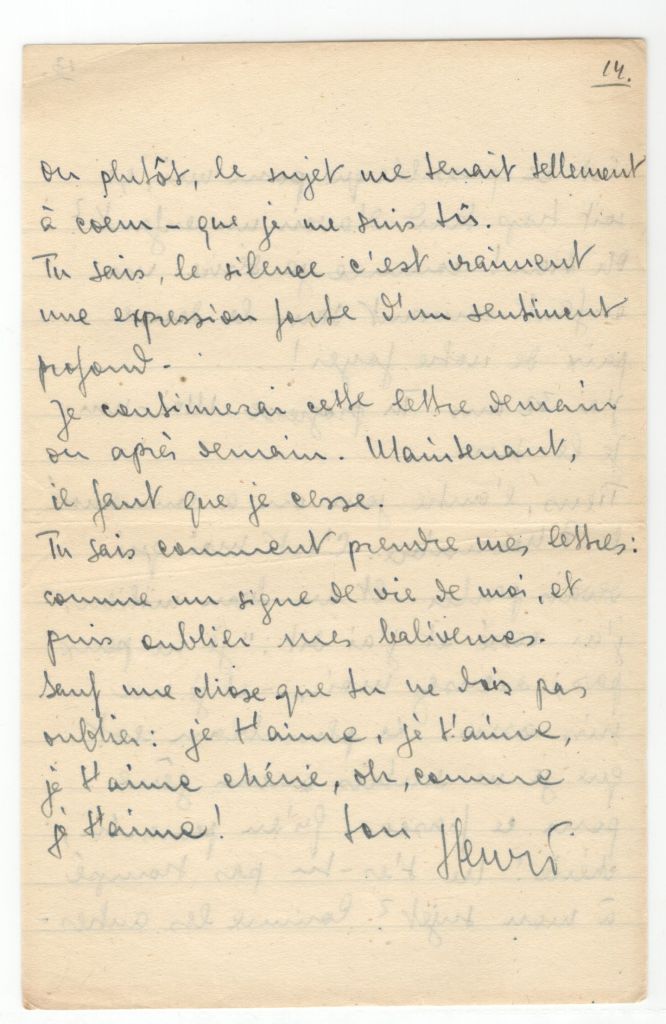 14.
ou plutôt, le sujet me tenait tellement
à coeur – que je me suis tû.
Tu sais, le silence c'est vraiment
une expression forte d'un sentiment
profond.
Je continuerai cette lettre demain
ou après demain. Maintenant,
il faut que je cesse.
Tu sais comment prendre mes lettres:
comme un signe de vie de moi, et
puis oublier mes balivernes.
Sauf une chose que tu ne dois pas
oublier: je t'aime, je t'aime,
je t'aime chérie, oh, comme
je t'aime! ton Henri